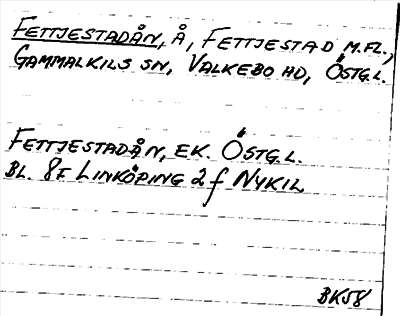 FETTJESTADÅN, Å, FETTJESTAD M.FL.,
GAMMALKILS SN, VALKEBO HD, ÖSTG.L.
FETTJESTADÅN, EK. ÖSTG.L.
BL. 8F LINKÖPING 2 f NYKIL
BK58